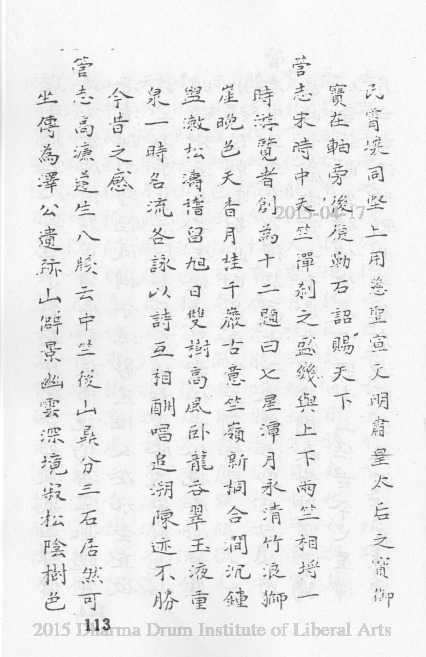 民霄壤同堅上用慈聖宣文明肅皇太后之寶御
寶在軸旁後復勒石詔賜天下
菅志宋時中天竺禪刹之盛幾與上下兩竺相埒一
時游覽者創為十二題曰七星潭月永清竹浪獅
崖晚色天香月桂千巖古意竺嶺新桐合澗沉鐘
盥漱松濤稽留旭日雙樹高風卧龍吞翠玉液重
泉一時名流各詠以詩互相酬唱追溯陳迹不勝
今昔之感
菅志高濂遵生八牋云中竺後山鼎分三石居然可
坐傳為澤公遺跡山僻景幽雲深境寂松陰樹色
113
2015-04-17
2015 Dharma Drum Institute of Liberal Arts